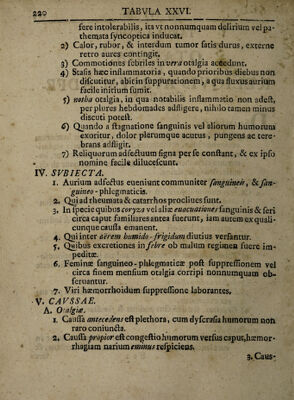 220 TABVLA XXVI.
fere intolerabilis, ita vt nonnumquam delirium vel pa-
themata syncoptica inducat.
2) Calor, rubor, & interdum tumor satis durus, externe
retro aures contingit.
3) Commotiones febriles in vera otalgia accedunt.
4) Stasis hæc inflammatoria, quando prioribus diebus non
discutitur, abit in suppurationem, a qua fluxus aurium
facile initium sumit.
5) notha otalgia, in qua notabilis inflammatio non adest,
per plures hebdomades adfligere, nihilo tamen minus
discuti potest.
6) Quando a stagnatione sanguinis vel aliorum humorum
exoritur, dolor plerumque acutus, pungens ac tere-
brans adfligit.
7) Reliquorum adfectuum signa per se constant, & ex ipso
nomine facile dilucescunt.
IV. SVBIECTA.
1. Aurium adfectus eueniunt communiter sanguineis, & san-
guineo-phlegmaticis.
2. Qui ad rheumata & catarrhos procliues sunt.
3. In specie quibus coryza vel aliæ euacuationes sanguinis & seri
circa caput familiares antea fuerunt, iam autem ex quali-
cunque caussa emanent.
4. Qui inter aërem humido-frigidum diutius versantur.
5. Quibus excretiones in febre ob malum regimen fuere im-
peditæ.
6. Feminæ sanguineo-phlegmaticæ post suppressionem vel
circa finem mensium otalgia corripi nonnumquam ob-
seruantur.
7. Viri hæmorrhoidum suppressione laborantes.
V. CAVSSAE.
A. Otalgiæ.
1. Caussa antecedens est plethora, cum dyscrasia humorum non
raro coniuncta.
2. Caussa propior est congestio humorum versus caput, hæmor-
rhagiam narium eminus respiciens.
3. Caus-